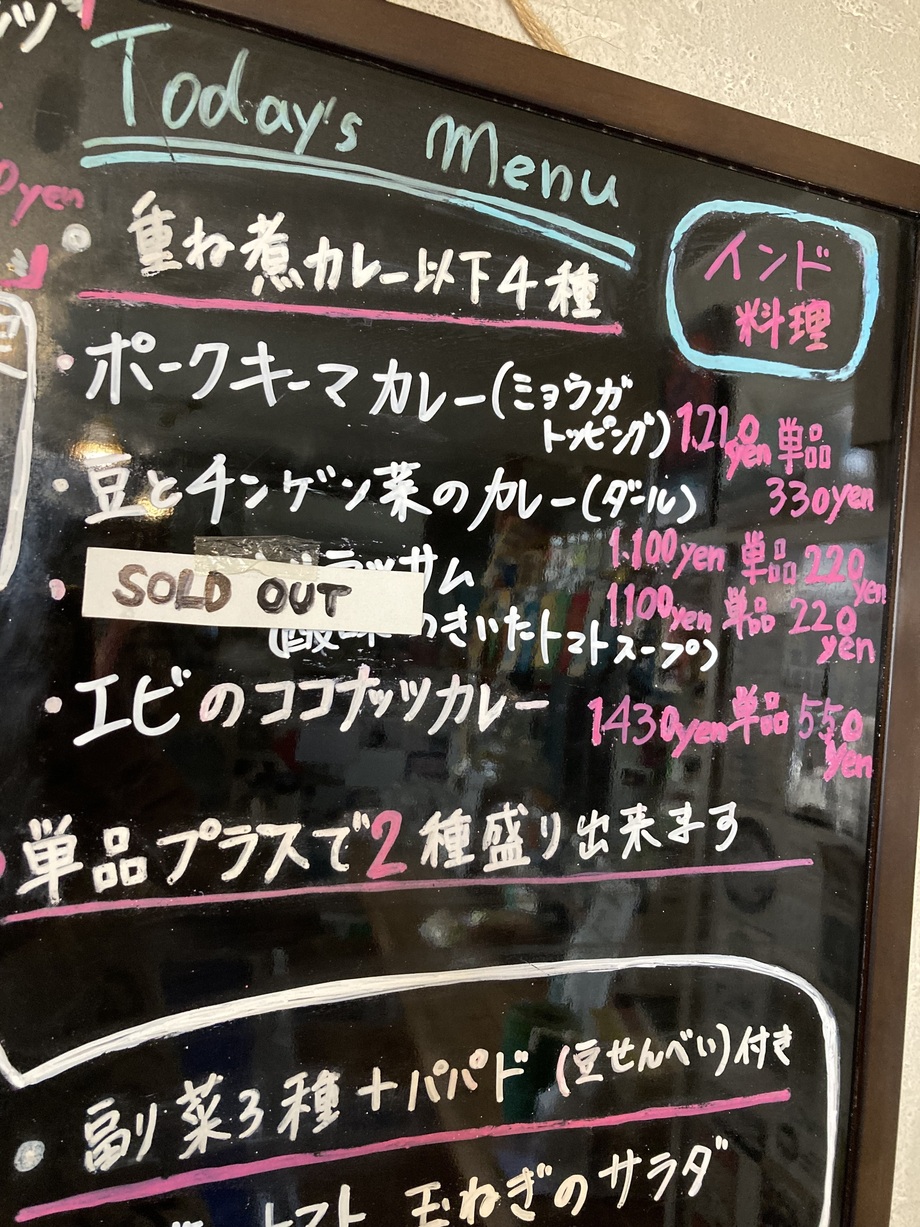 ツ
Today's Menu
0yen
重ね煮カレー以下4種
インド
料理
・ポークキーマカレー(ミョウガ
トッピング)1.210yen 単品
330yen
・豆とチンゲン菜のカレー(ダール)
1.100yen 単品 220yen
SOLD OUT
ラッサム
1100yen 単品 220yen
(酸味のきいたトマトスープ)
・エビのココナッツカレー
1430yen 単品 550yen
単品プラスで2種盛り出来ます
副菜3種+パパド(豆せんべい)付き
トマト 玉ねぎのサラダ